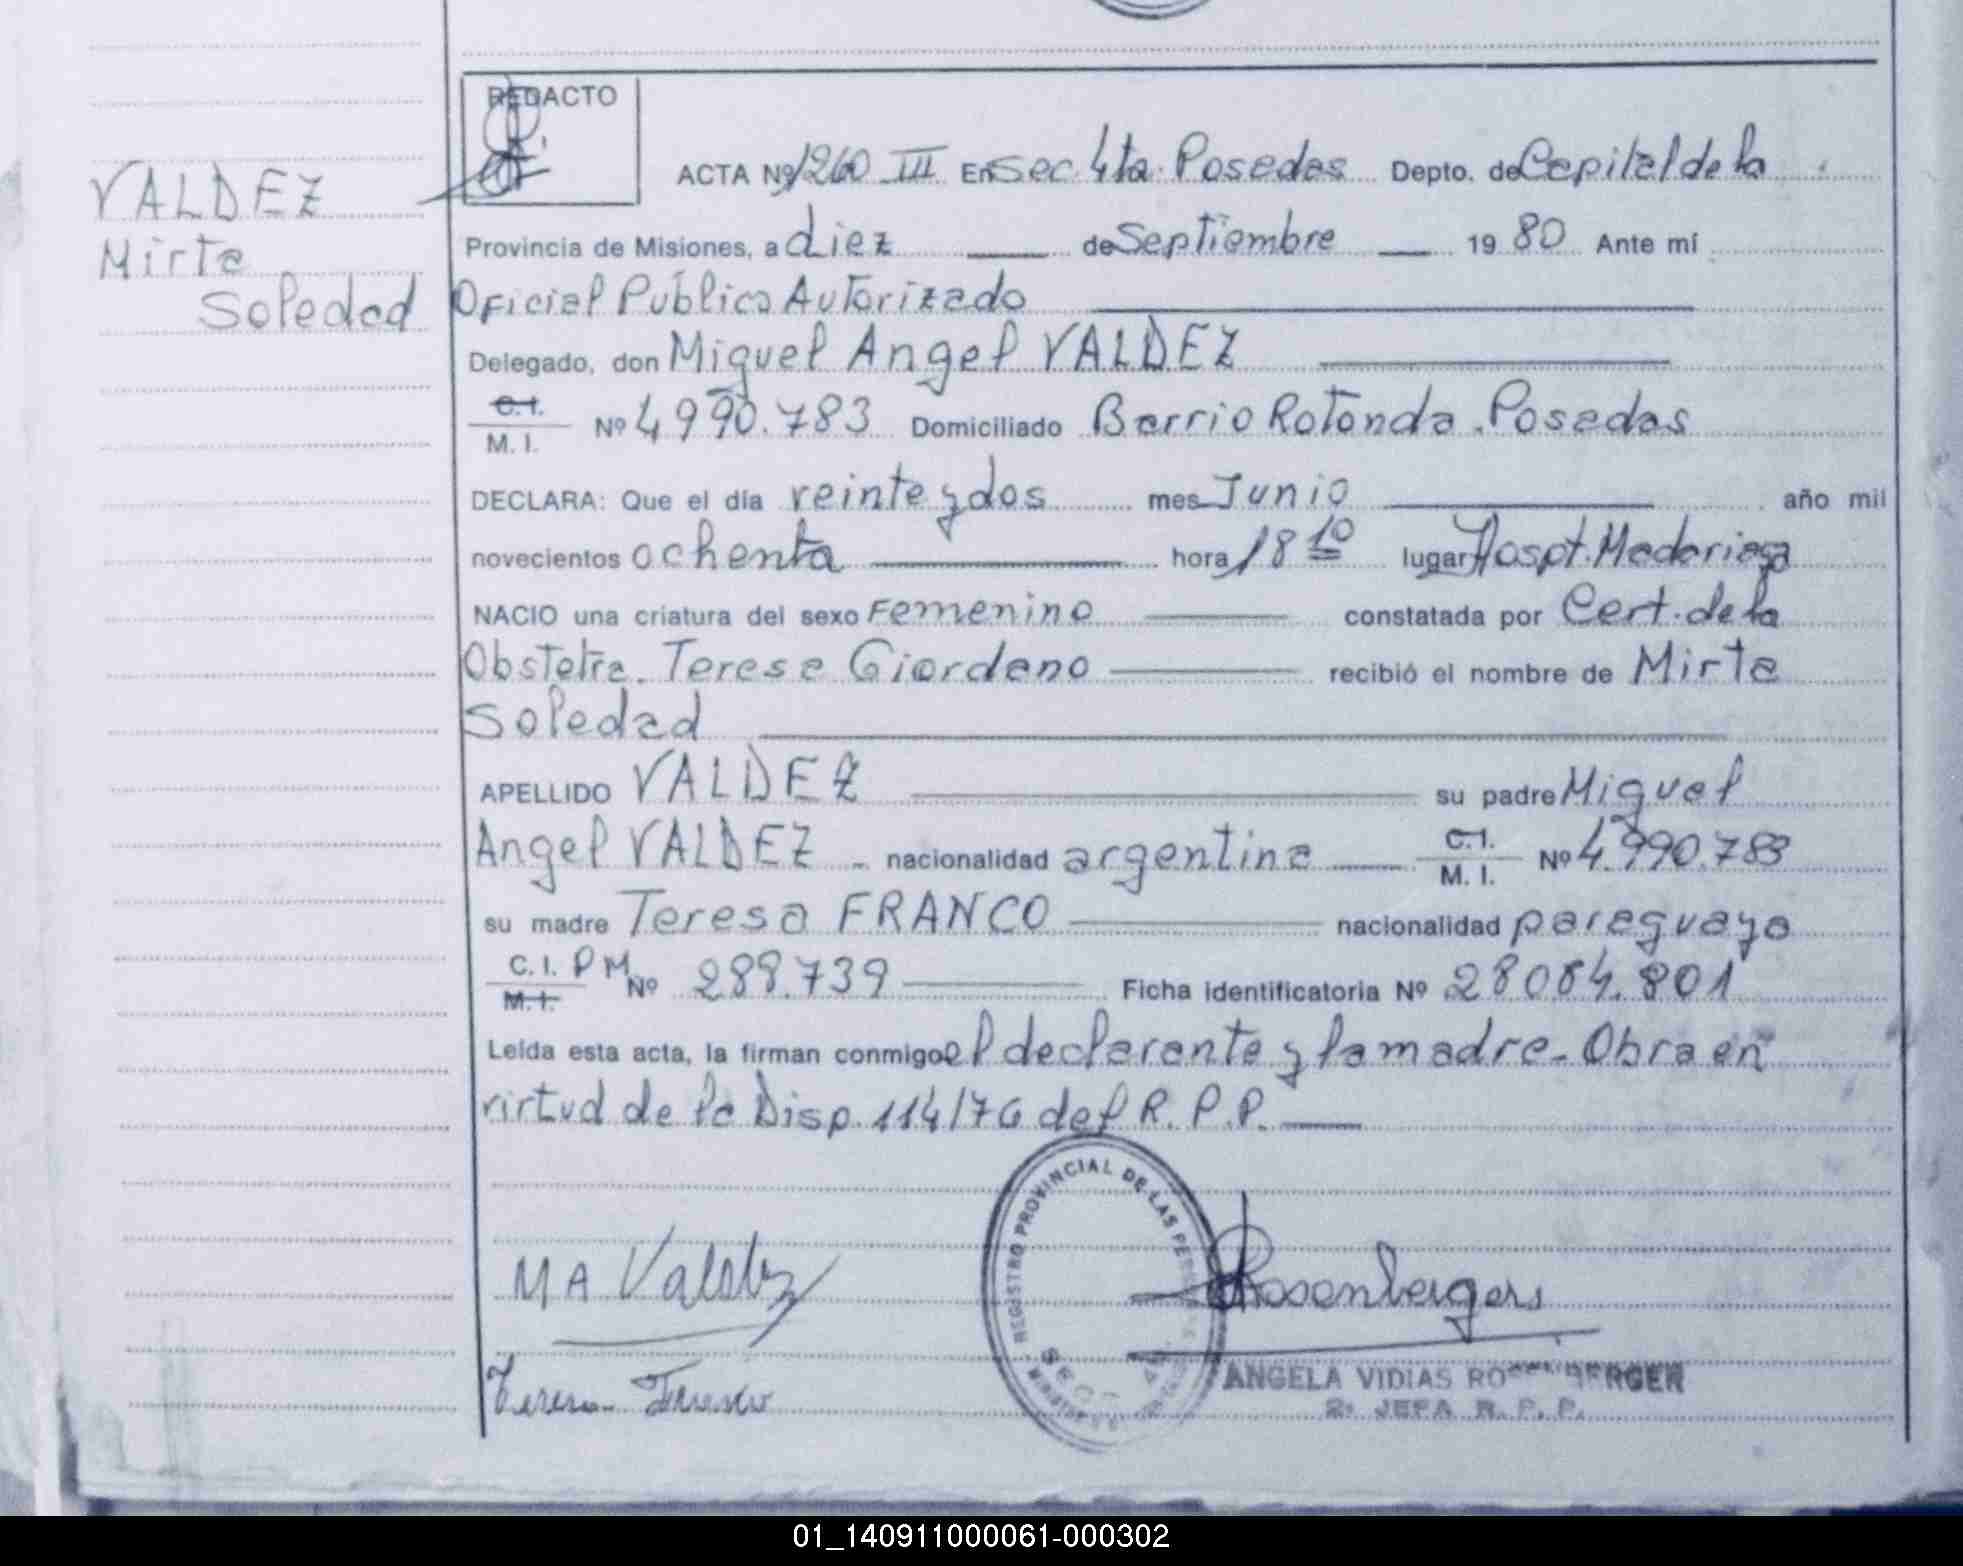 REDACTO
VALDEZ
Mirta
Soledad
ACTA Nº 1260 III En Sec 4ta. Posadas Depto. de Capital de la
Provincia de Misiones, a diez de Septiembre 19 80 Ante mí
Oficial Público Autorizado
Delegado, don Miguel Angel VALDEZ
C.I.
M. I. Nº 4990.783 Domiciliado Barrio Rotonda. Posadas
DECLARA: Que el día veinte y dos mes Junio año mil
novecientos ochenta hora 18 10 lugar Hospt. Madariaga
NACIO una criatura del sexo Femenino constatada por Cert. de la
Obstetra. Teresa Giordano recibió el nombre de Mirta
Soledad
APELLIDO VALDEZ su padre Miguel
Angel VALDEZ nacionalidad argentina C.I. M. I. Nº 4.990.783
su madre Teresa FRANCO nacionalidad paraguaya
C. I. P M Nº 288.739 Ficha identificatoria Nº 28084.801
M. I.
Leída esta acta, la firman conmigo el declarante y la madre - Obra en
virtud de la Disp. 114/76 del R. P. P.
REGISTRO PROVINCIAL DE LAS PERSONAS
MA Valdez
Rosenbergers
Teresa Franco
ANGELA VIDIAS ROSENBERGER
2ª JEFA R. P. P.
01_140911000061-000302